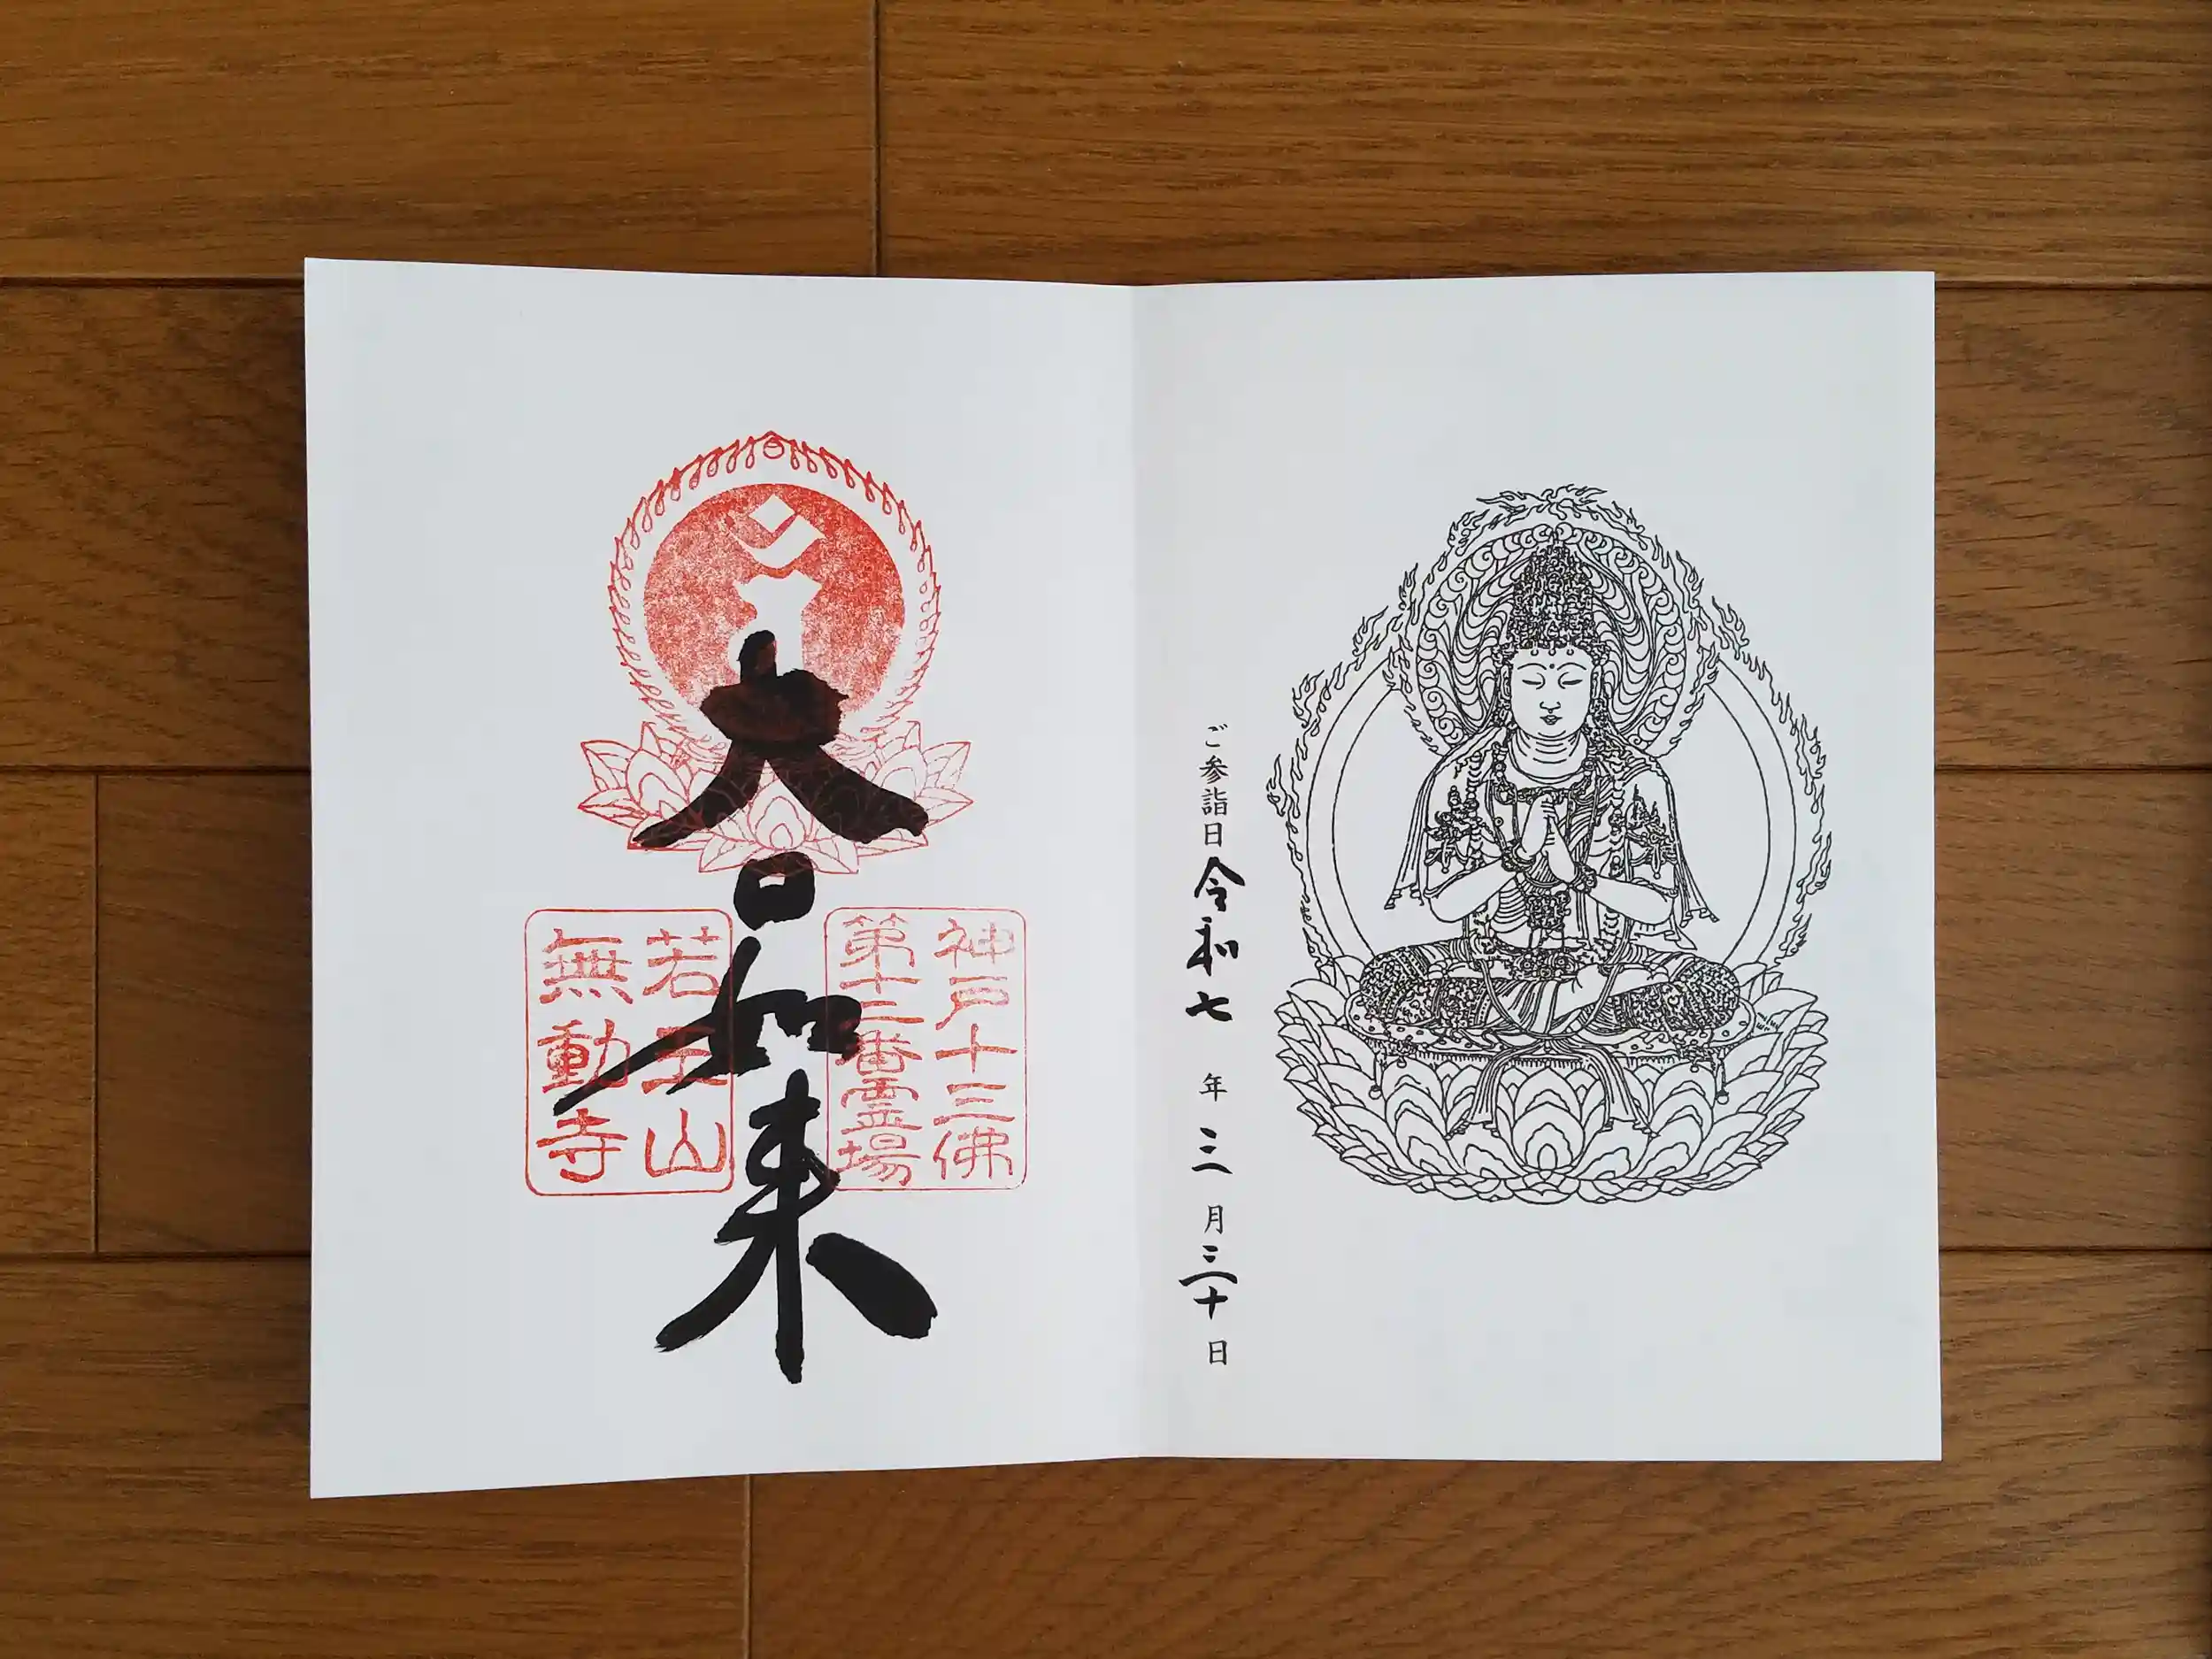 ご参詣日令和七年三月三十日
神戸十三佛
第十二番霊場
大日如来
若王山
無動寺